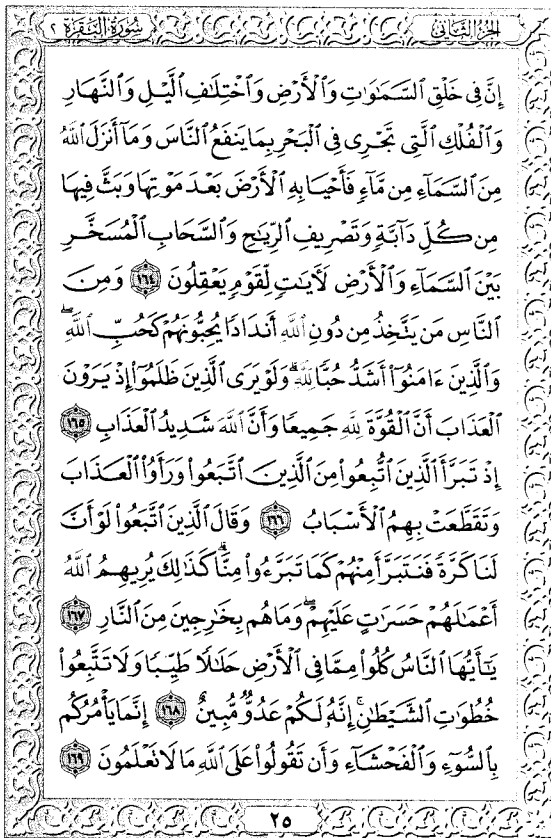 الجزء الثاني
سورة البقرة ٢
إِنَّ فِى خَلْقِ ٱلسَّمَٰوَٰتِ وَٱلْأَرْضِ وَٱخْتِلَٰفِ ٱلَّيْلِ وَٱلنَّهَارِ
وَٱلْفُلْكِ ٱلَّتِى تَجْرِى فِى ٱلْبَحْرِ بِمَا يَنفَعُ ٱلنَّاسَ وَمَآ أَنزَلَ ٱللَّهُ
مِنَ ٱلسَّمَآءِ مِن مَّآءٍ فَأَحْيَا بِهِ ٱلْأَرْضَ بَعْدَ مَوْتِهَا وَبَثَّ فِيهَا
مِن كُلِّ دَآبَّةٍ وَتَصْرِيفِ ٱلرِّيَٰحِ وَٱلسَّحَابِ ٱلْمُسَخَّرِ
بَيْنَ ٱلسَّمَآءِ وَٱلْأَرْضِ لَأَيَٰتٍ لِّقَوْمٍ يَعْقِلُونَ ١٦٤ وَمِنَ
ٱلنَّاسِ مَن يَتَّخِذُ مِن دُونِ ٱللَّهِ أَندَادًا يُحِبُّونَهُمْ كَحُبِّ ٱللَّهِۖ
وَٱلَّذِينَ ءَامَنُوٓا۟ أَشَدُّ حُبًّا لِّلَّهِۗ وَلَوْ يَرَى ٱلَّذِينَ ظَلَمُوٓا۟ إِذْ يَرَوْنَ
ٱلْعَذَابَ أَنَّ ٱلْقُوَّةَ لِلَّهِ جَمِيعًا وَأَنَّ ٱللَّهَ شَدِيدُ ٱلْعَذَابِ ١٦٥
إِذْ تَبَرَّأَ ٱلَّذِينَ ٱتُّبِعُوا۟ مِنَ ٱلَّذِينَ ٱتَّبَعُوا۟ وَرَأَوُا۟ ٱلْعَذَابَ
وَتَقَطَّعَتْ بِهِمُ ٱلْأَسْبَابُ ١٦٦ وَقَالَ ٱلَّذِينَ ٱتَّبَعُوا۟ لَوْ أَنَّ
لَنَا كَرَّةً فَنَتَبَرَّأَ مِنْهُمْ كَمَا تَبَرَّءُوا۟ مِنَّاۗ كَذَٰلِكَ يُرِيهِمُ ٱللَّهُ
أَعْمَٰلَهُمْ حَسَرَٰتٍ عَلَيْهِمْۖ وَمَا هُم بِخَٰرِجِينَ مِنَ ٱلنَّارِ ١٦٧
يَٰٓأَيُّهَا ٱلنَّاسُ كُلُوا۟ مِمَّا فِى ٱلْأَرْضِ حَلَٰلًا طَيِّبًا وَلَا تَتَّبِعُوا۟
خُطُوَٰتِ ٱلشَّيْطَٰنِۚ إِنَّهُۥ لَكُمْ عَدُوٌّ مُّبِينٌ ١٦٨ إِنَّمَا يَأْمُرُكُم
بِٱلسُّوٓءِ وَٱلْفَحْشَآءِ وَأَن تَقُولُوا۟ عَلَى ٱللَّهِ مَا لَا تَعْلَمُونَ ١٦٩
٢٥